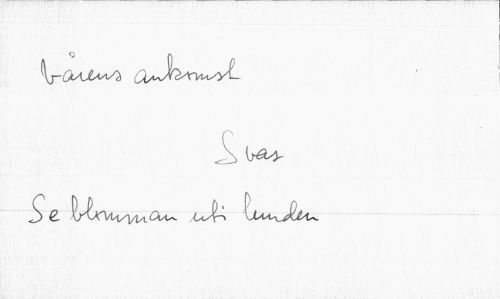 Vårens ankomst
Svas
Se blomman uti lunden